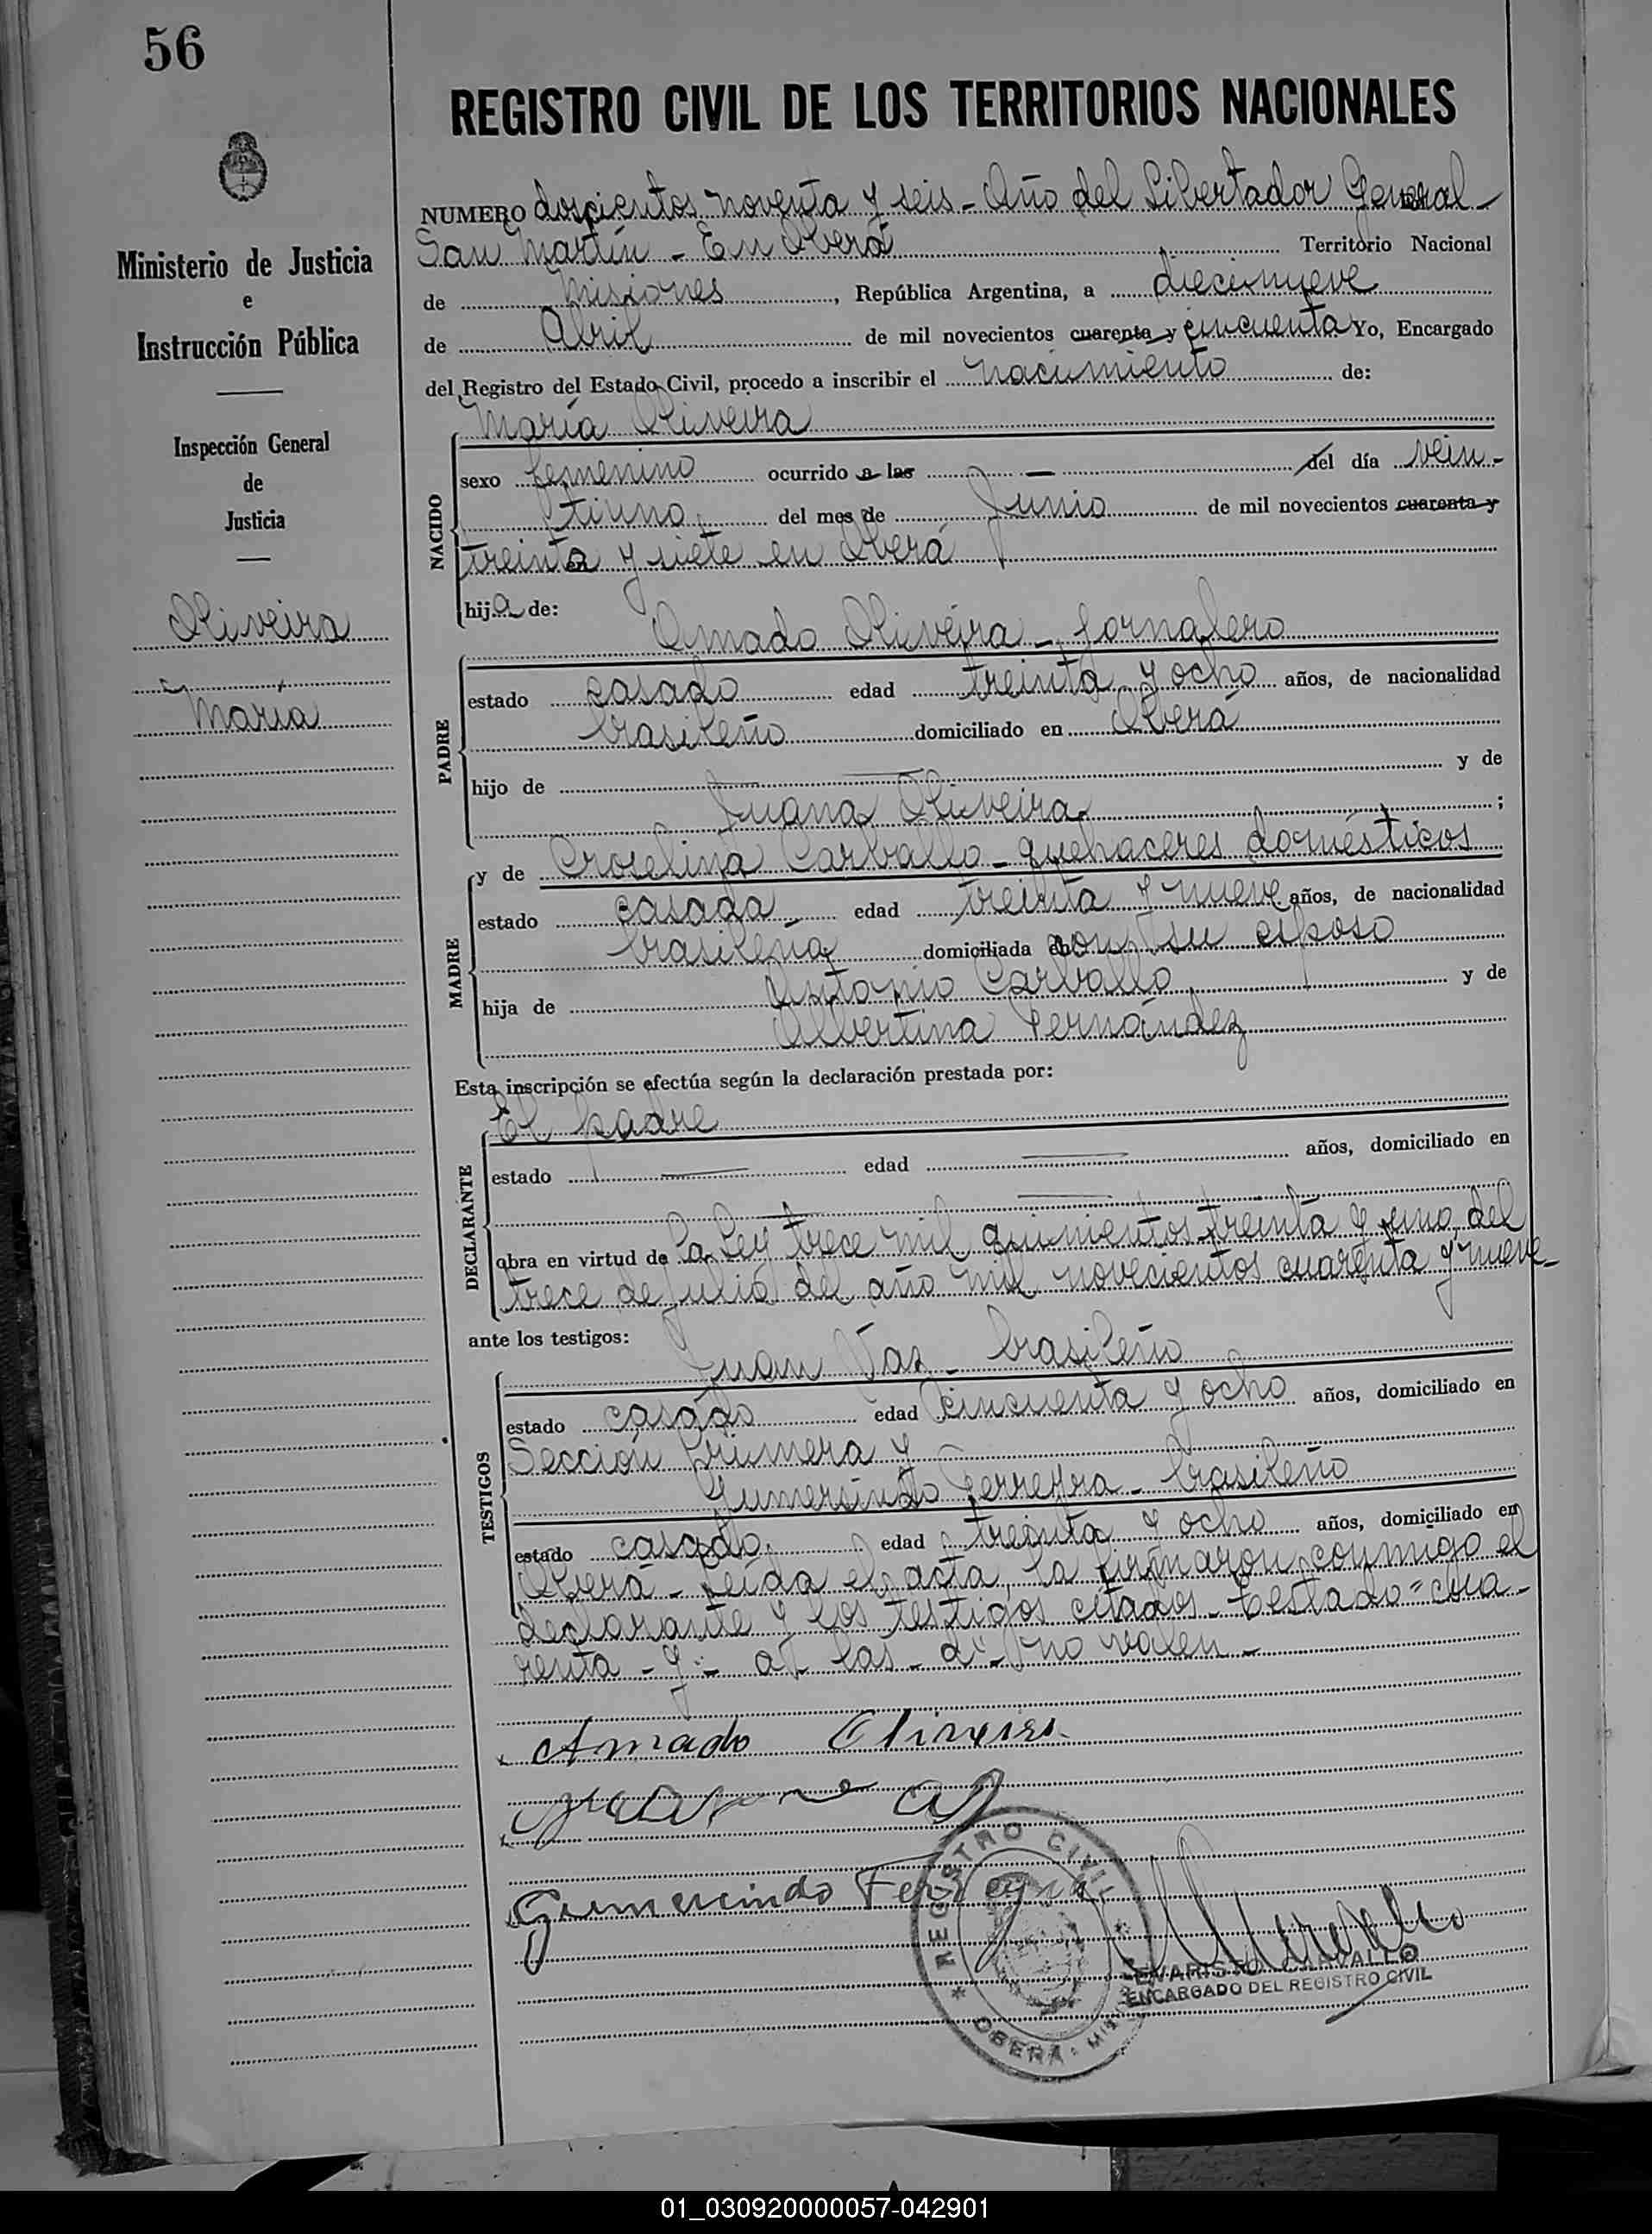 56
REGISTRO CIVIL DE LOS TERRITORIOS NACIONALES
Ministerio de Justicia
e
Instrucción Pública
Inspección General
de
Justicia
Oliveira
María
NUMERO doscientos noventa y seis - Año del Libertador General
San Martín - En Oberá Territorio Nacional
de Misiones, República Argentina, a diecinueve
de Abril de mil novecientos cuarenta y cincuenta Yo, Encargado
del Registro del Estado Civil, procedo a inscribir el nacimiento de:
María Oliveira
NACIDO
sexo femenino ocurrido a las — del día vein-
tiuno del mes de Junio de mil novecientos cuarenta y
treinta y siete en Oberá
hija de:
Amado Oliveira - Jornalero
PADRE
estado casado edad treinta y ocho años, de nacionalidad
brasileño domiciliado en Oberá
hijo de — y de
Juana Oliveira ;
y de Croselina Carballo - quehaceres domésticos
MADRE
estado casada edad treinta y nueve años, de nacionalidad
brasileña domiciliada en con su esposo
hija de Antonio Carballo y de
Albertina Fernández
Esta inscripción se efectúa según la declaración prestada por:
El padre
DECLARANTE
estado — edad — años, domiciliado en
obra en virtud de La Ley trece mil quinientos treinta y uno, del
trece de julio del año mil novecientos cuarenta y nueve-
ante los testigos:
Juan Vaz - brasileño
TESTIGOS
estado casado edad cincuenta y ocho años, domiciliado en
Sección Primera y
Gumersindo Ferreyra - brasileño
estado casado edad treinta y ocho años, domiciliado en
Oberá - Leída el acta, la firmaron conmigo el
declarante y los testigos citados - Testado = cua-
renta - y - a - las - d - no valen -
Amado Oliveira
Gumercindo Ferreyra
REGISTRO CIVIL
OBERÁ
EVARISTO CARAVALLO
ENCARGADO DEL REGISTRO CIVIL
01_030920000057-042901